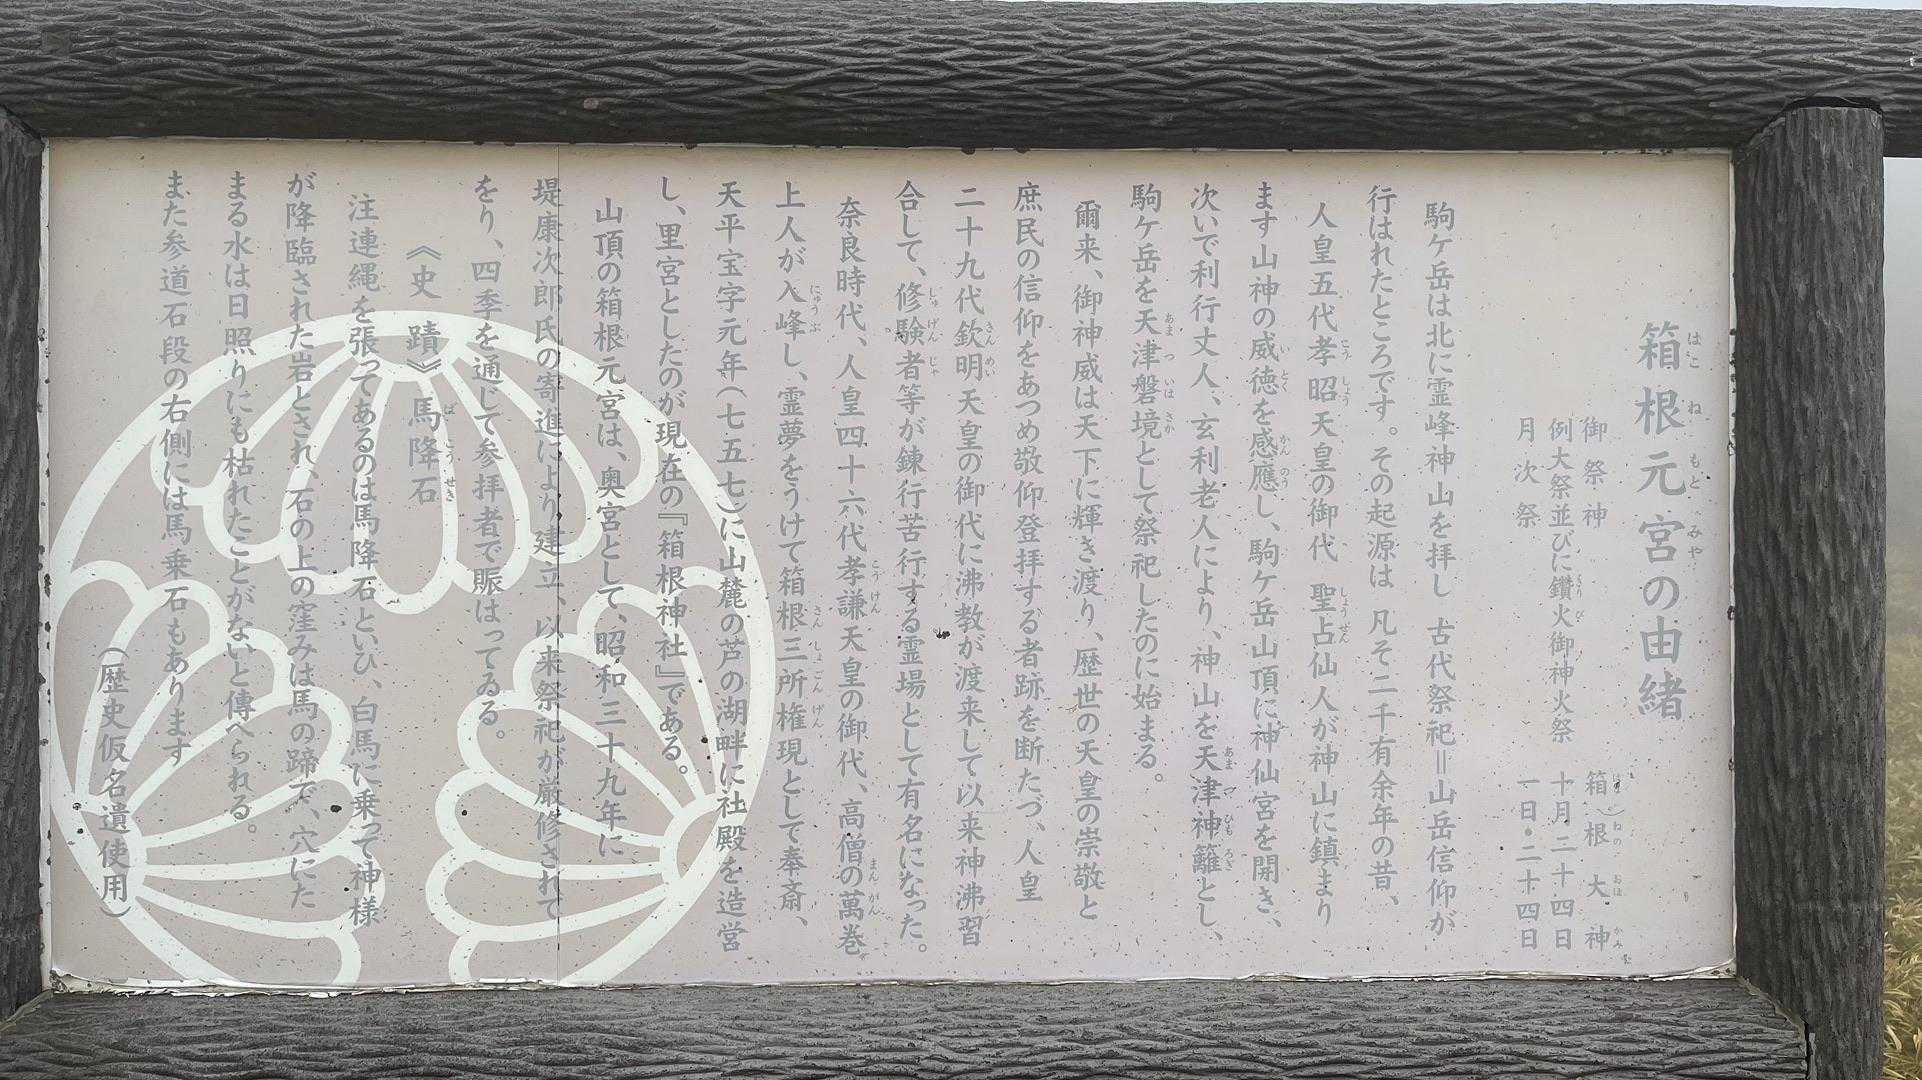 箱根元宮の由緒
御祭神　箱根大神
例大祭並びに鑽火御神火祭　十月二十四日
月次祭　一日・二十四日
駒ケ岳は北に霊峰神山を拝し　古代祭祀＝山岳信仰が
行はれたところです。その起源は　凡そ二千有余年の昔、
人皇五代孝昭天皇の御代　聖占仙人が神山に鎮まり
ます山神の威徳を感應し、駒ケ岳山頂に神仙宮を開き、
次いで利行丈人、玄利老人により、神山を天津神籬とし、
駒ケ岳を天津磐境として祭祀したのに始まる。
爾来、御神威は天下に輝き渡り、歴世の天皇の崇敬と
庶民の信仰をあつめ敬仰登拝する者跡を断たづ、人皇
二十九代欽明天皇の御代に沸教が渡来して以来神沸習
合して、修験者等が錬行苦行する霊場として有名になった。
奈良時代、人皇四十六代孝謙天皇の御代、高僧の萬巻
上人が入峰し、霊夢をうけて箱根三所権現として奉斎、
天平宝字元年（七五七）に山麓の芦の湖畔に社殿を造営
し、里宮としたのが現在の『箱根神社』である。
山頂の箱根元宮は、奥宮として、昭和三十九年に
堤康次郎氏の寄進により建立、以来祭祀が厳修されて
をり、四季を通じて参拝者で賑はってゐる。
《史蹟》馬降石
注連縄を張ってあるのは馬降石といひ、白馬に乗って神様
が降臨された岩とされ、石の上の窪みは馬の蹄で、穴にた
まる水は日照りにも枯れたことがないと傳へられる。
また参道石段の右側には馬乗石もあります
（歴史仮名遺使用）